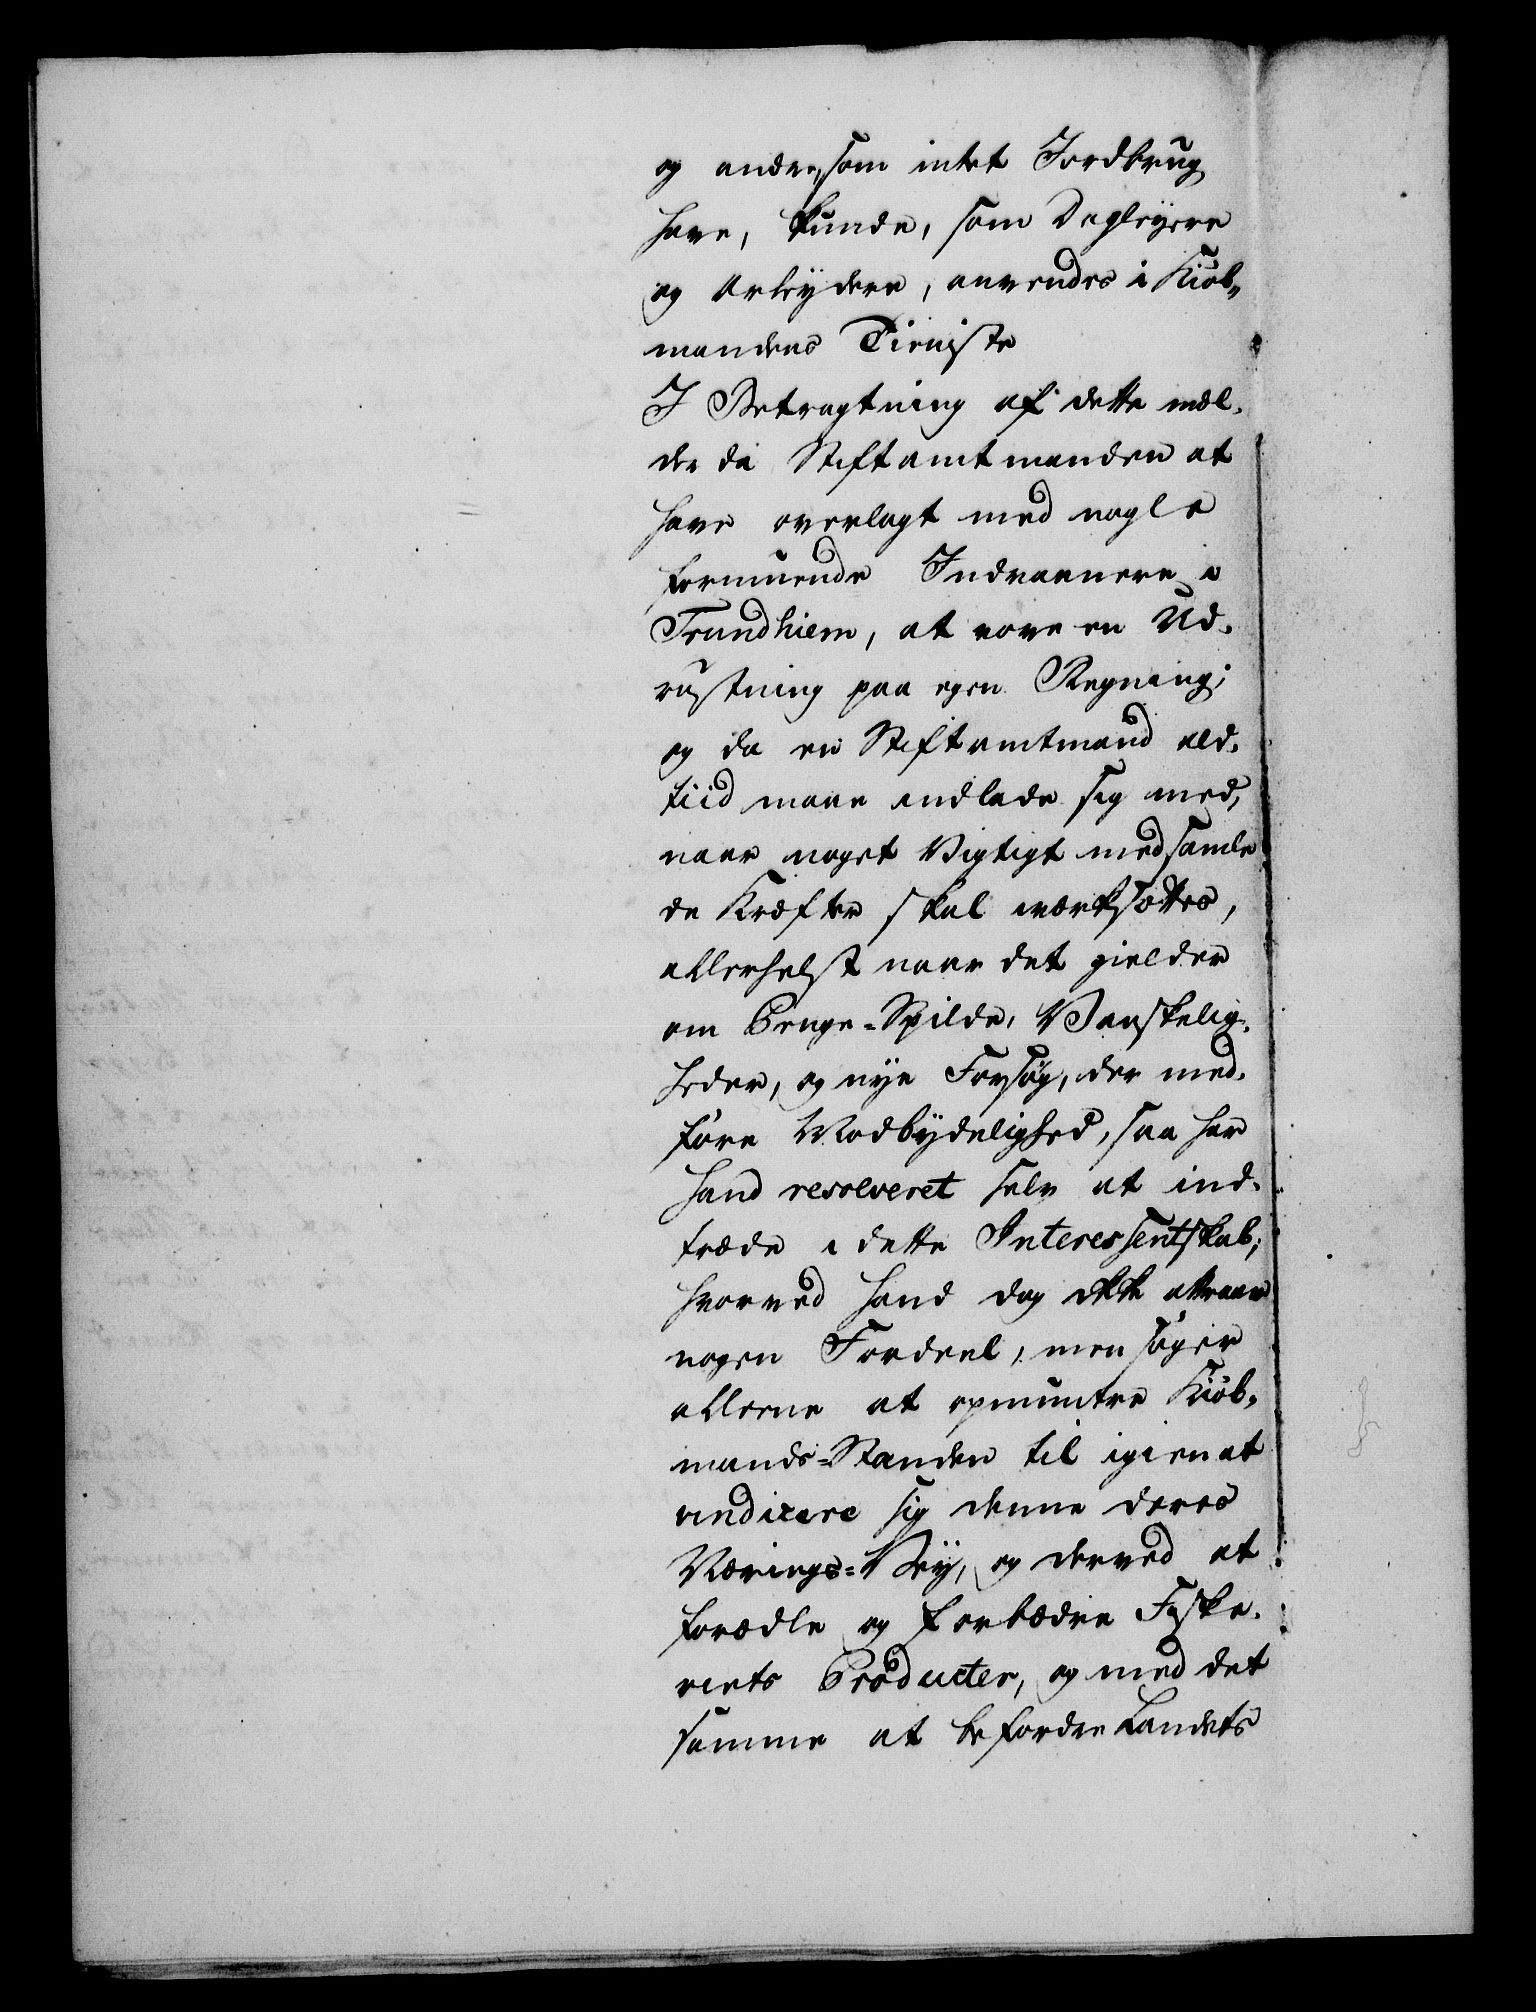 og andre, som intet Jordbrug
have, kunde, som Dagleyere
og Arbeydere, anvendes i Kiøb„
mandens Tieniste
I Betragtning af dette mel„
der da Stiftamtmanden at
have overlagt med nogle
formuende Indvaanere i
Trundhiem, at vove en Ud„
rustning paa egen Regning;
og da en Stiftamtmand ald„
tiid maae indlade sig med,
naar noget Vigtigt med samle
de Kræfter skal iværksættes,
allerhelst naar det gielder
om Penge-Spilde, Vanskelig„
heder, og nye Forsøg, der med„
føre Modbydelighed, saa har
hand resolveret selv at ind„
træde i dette Interessentskab;
hvorved hand dog ikke attraaer
nogen Fordeel, men søger
alleene at opmuntre Kiøb„
mands-Standen til igien at
vindicere sig denne deres
Nærings-Vey, og derved at
forædle og forbædre Fiske„
riets Producter, og med det
samme at befordre Landets